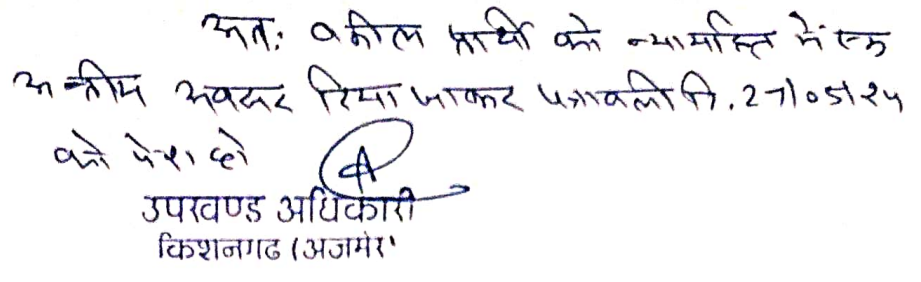 अतः वकील प्रार्थी को न्यायहित में एक
अन्तीम अवसर दिया जाकर पत्रावली दि. 27/05/24
को पेश हो
उपखण्ड अधिकारी
किशनगढ (अजमेर)